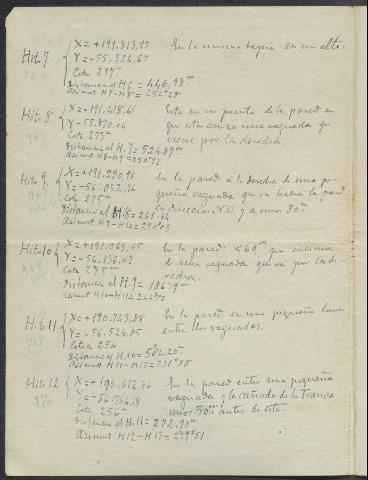 Hit. 7
X = +191.813,93
Y = -55.524,67
Cota 297m
Distancia al H.6 = 446,98m
Azimut H7-H8 = 256º28
En la misma tapia en un alto.
Hito 8
X = +191.418,61
Y = -55.870,04
Cota 273m
distancia al H.7 = 524.87m
Azimut H8-H9 =
Esta en un punto de la pared en
que esta cruza una vaguada que
viene por la derecha
Hito 9.
X = +191.290,18
Y = -56.052,36
Cota 275m
Distancia al H8 = 261.66
Azimut H9-H10 =
En la pared a la derecha de una pe-
queña vaguada que va hacia la pared
en direccion N.O. y a unos 30m
Hito 10
X = +191.065,65
Y = -56.136,02
Cota 275m
distancia al H.9 = 186.19m
Azimut H10-H11 =
En la pared a 60m por encima
de una vaguada que va por la de-
recha
Hito 11
X = +190.743,88
Y = -56.524,85
Cota 254
Distancia al H.10 = 504.20m
Azimut H11-H12 = 231º88
En la pared en una pequeña loma
entre dos vaguadas.
Hito 12
X = +190.612,86
Y = -56.764,18
Cota 256m
distancia al H11 = 272.90m
Azimut H12-H13 = 239º51
En la pared entre una pequeña
vaguada y la cañada de la Tranca
unos 50m antes de esta.